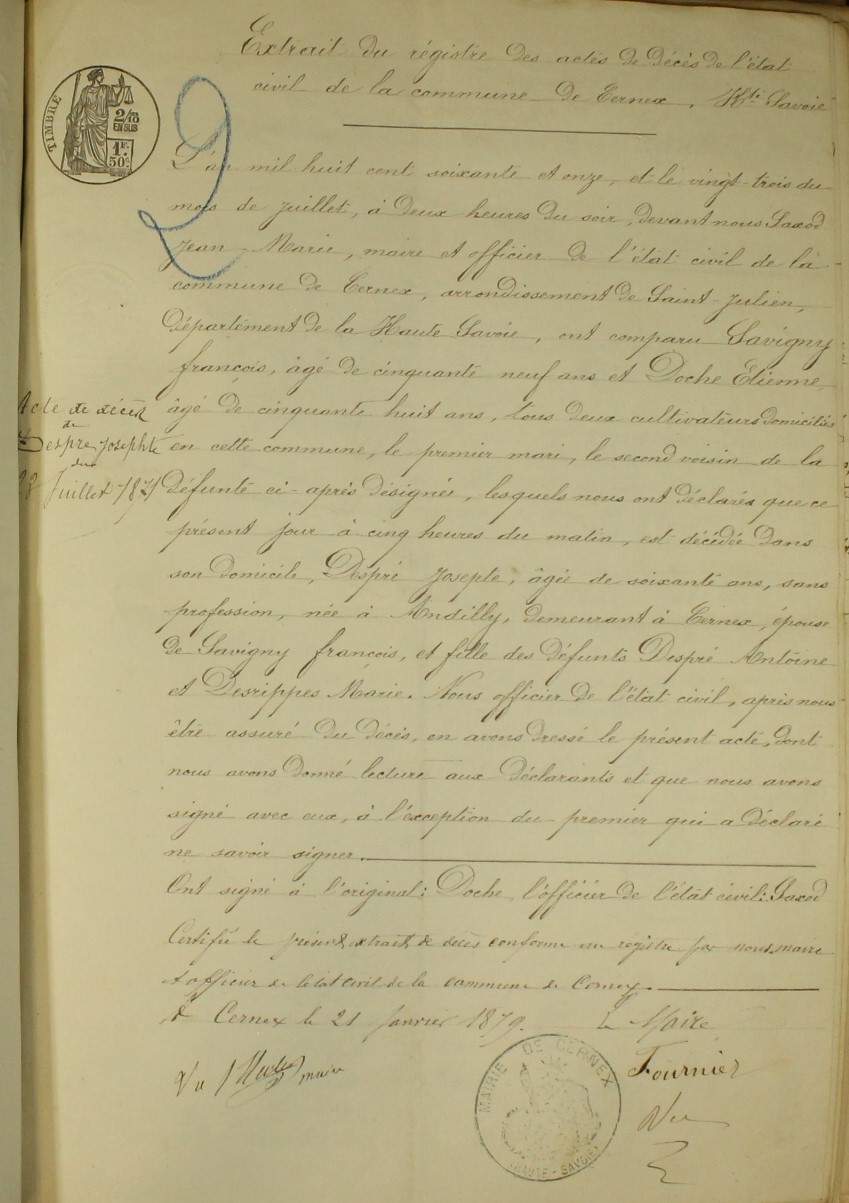 Extrait du régistre des actes de décès de l'état
civil de la commune de Cernex, Hte Savoie
TIMBRE
2/10
EN SUS
1F
50c
2
L'an mil huit cent soixante et onze, et le vingt-trois du
mois de juillet, à deux heures du soir, devant nous Saxod
Jean-Marie, maire et officier de l'état civil de la
commune de Cernex, arrondissement de Saint-Julien,
département de la Haute Savoie, ont comparu Savigny
françois, âgé de cinquante neuf ans et Doche Etienne
Acte de décès
de
Despre Josephte
du
23 Juillet 1871
âgé de cinquante huit ans, tous deux cultivateurs domiciliés
en cette commune, le premier mari, le second voisin de la
défunte ci-après désignée, lesquels nous ont déclarés que ce
présent jour à cinq heures du matin, est décédée dans
son domicile, Despré Josepte, âgée de soixante ans, sans
profession, née à Andilly, demeurant à Cernex, épouse
de Savigny françois, et fille des défunts Despré Antoine
et Desrippes Marie. Nous officier de l'état civil, après nous
être assuré du décès, en avons dressé le présent acte, dont
nous avons donné lecture aux déclarants et que nous avons
signé avec eux, à l'exception du premier qui a déclaré
ne savoir signer.
Ont signé à l'original: Doche, l'officier de l'état civil: Saxod
Certifié le présent extrait de décès conforme au registre par nous, maire
et officier de l'état civil de la commune de Cernex.
à Cernex le 21 Janvier 1879.
Le Maire
Fournier
Vu
maire
MAIRIE DE CERNEX
HAUTE-SAVOIE
Vu